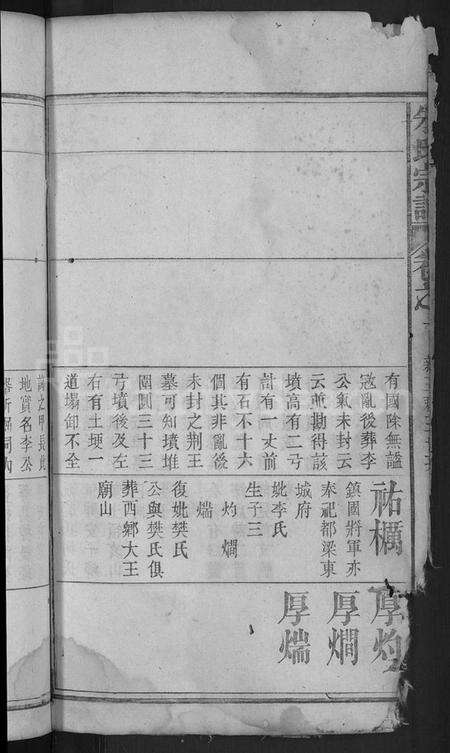 朱氏宗譜
有國除無謚
寇亂後葬李
公氣未封云
云並勘得該
墳高有二弓
計有一丈前
有石不十六
個其非亂後
未封之荆王
墓可知墳堆
圍圓三十三
弓墳後及左
右有土埂一
道塌卸不全
祐櫔
鎮國將軍亦
奉祀都梁東
城府
妣李氏
生子三
灼 燗
煓
復妣樊氏
公與樊氏俱
葬西鄉大王
廟山
厚灼
厚燗
厚煓
地賓名李公